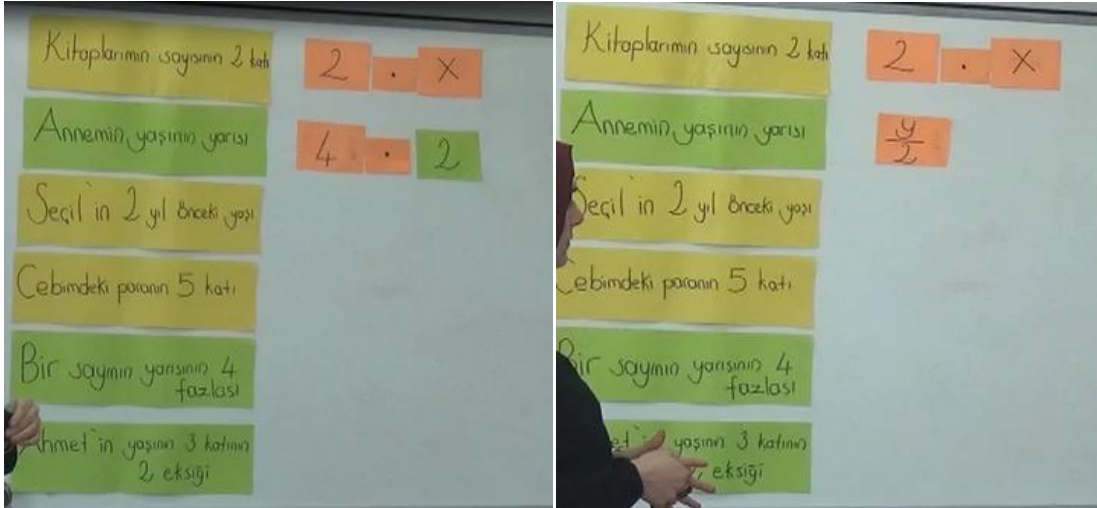 Kitaplarımın sayısının 2 katı
2 . X
Annemin yaşının yarısı
4 . 2
Seçil'in 2 yıl önceki yaşı
Cebimdeki paranın 5 katı
Bir sayının yarısının 4
fazlası
Ahmet'in yaşının 3 katının
2 eksiği
Kitaplarımın sayısının 2 katı
2 . X
Annemin yaşının yarısı
y
2
Seçil'in 2 yıl önceki yaşı
Cebimdeki paranın 5 katı
Bir sayının yarısının 4
fazlası
yaşının 3 katının
eksiği